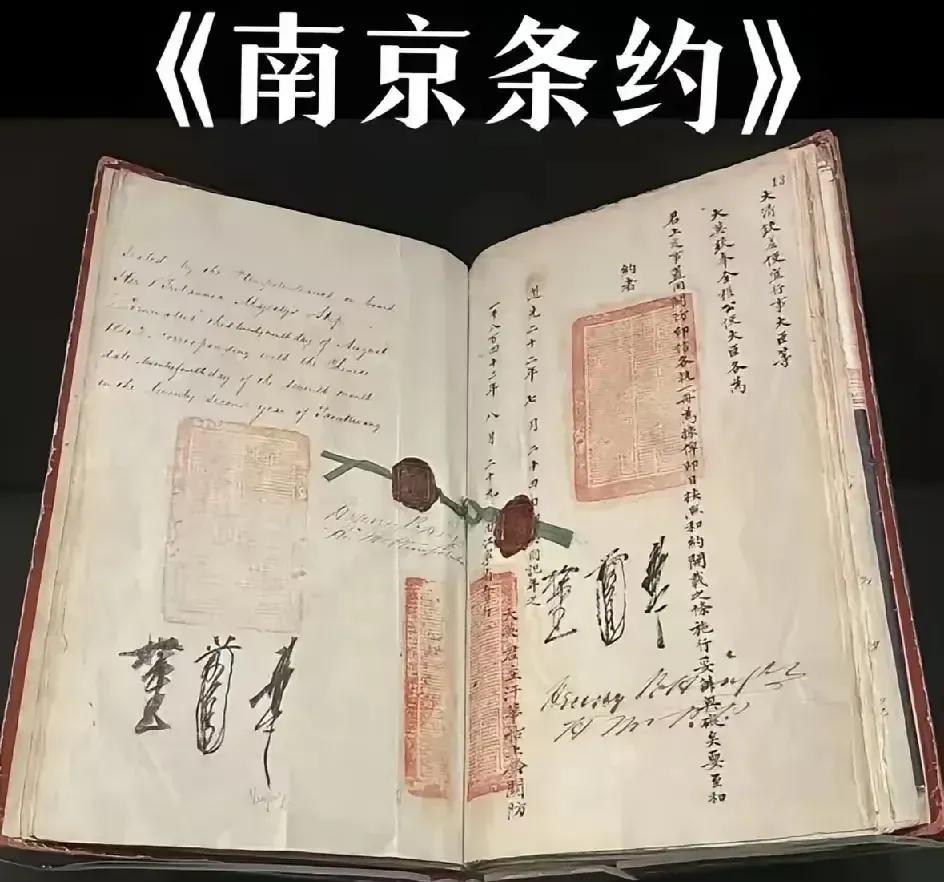 《南京条约》
Sealed by the Plenipotentiaries on board
Her Britannic Majesty's Ship
Cornwallis this twenty ninth day of August
1842, corresponding with the Chinese
date, twenty fourth day of the seventh month
in the twenty second year of Taoukwang
13
大清欽差便宜行事大臣等
大英欽奉全權公使大臣各為
君上定事蓋用關防印信各執一冊為據俾即日按照和約開載之條施行妥辦無礙矣要至和
約者
道光二十二年七月二十四日即英國記年之
一千八百四十二年八月二十九日
大英君主汗華船上鈐關防